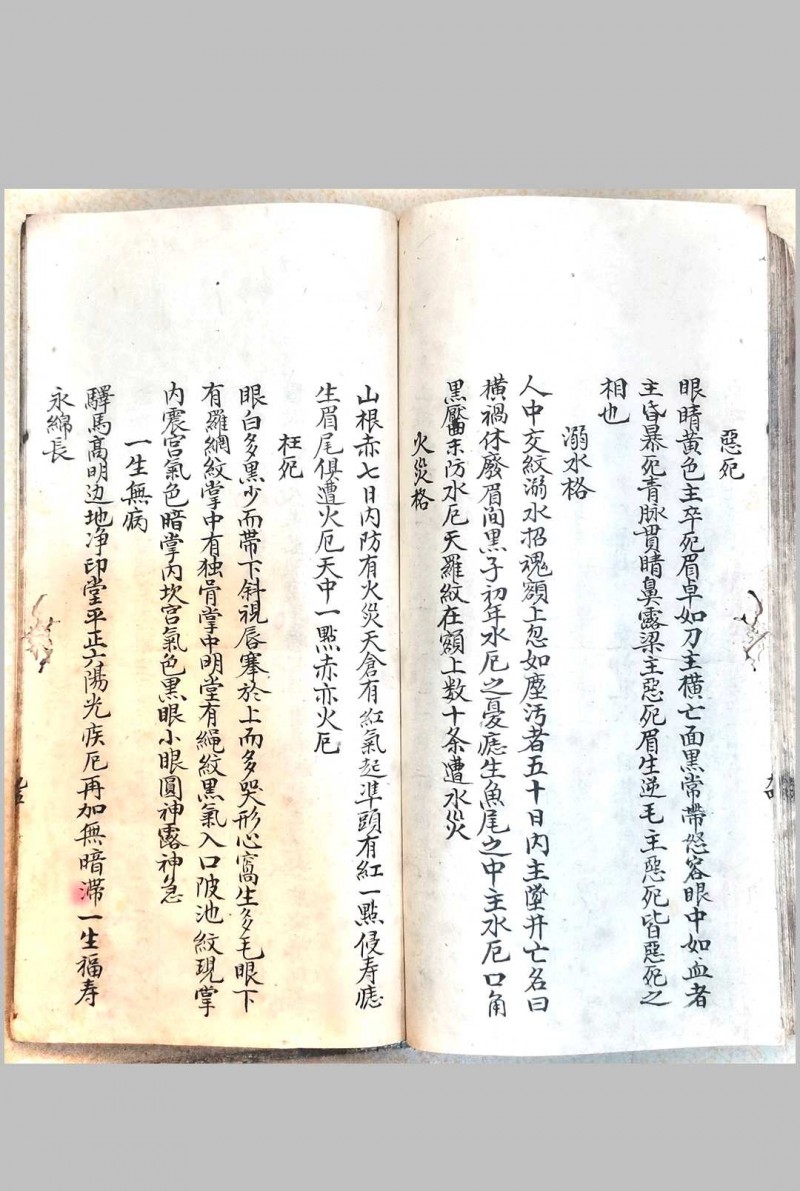 惡死
眼睛黃色主卒死眉卓如刀主橫亡面黑常帶怒容眼中如血者
主昏暴死青脉貫睛鼻露梁主惡死眉生逆毛主惡死皆惡死之
相也
溺水格
人中交紋溺水招魂額上忽如塵汚者五十日內主墜井亡名曰
橫禍休廢眉间黑子初年水厄之憂痣生魚尾之中主水厄口角
黑靨末防水厄天羅紋在額上数十条遭水災
火災格
九四
山根赤七日內防有火災天倉有紅氣起準頭有紅一點侵寿痣
生眉尾俱遭火厄天中一點赤亦火厄
枉死
眼白多黑少而帶下斜視唇搴於上而多哭形心窩生多毛眼下
有羅網紋掌中有独骨掌中明堂有繩紋黑氣入口陂池紋現掌
內震宮氣色暗掌內坎宮氣色黑眼小眼圓神露神急
一生無病
驛馬高明边地净印堂平正六陽光疾厄再加無暗滯一生福寿
永綿長
九五